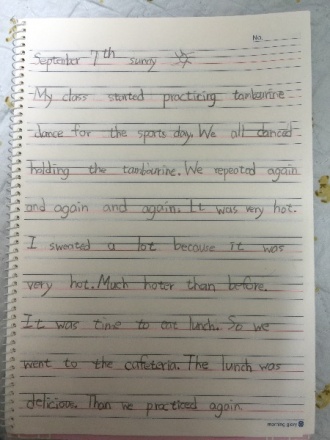 No.
September 7th sunny
My class started practicing tambourine
dance for the sports day. We all danced
holding the tambourine. We repeated again
and again and again. It was very hot.
I sweated a lot because it was
very hot. Much hoter than before.
It was time to eat lunch. So we
went to the cafeteria. The lunch was
delicious. Than we practiced again.
morning glory